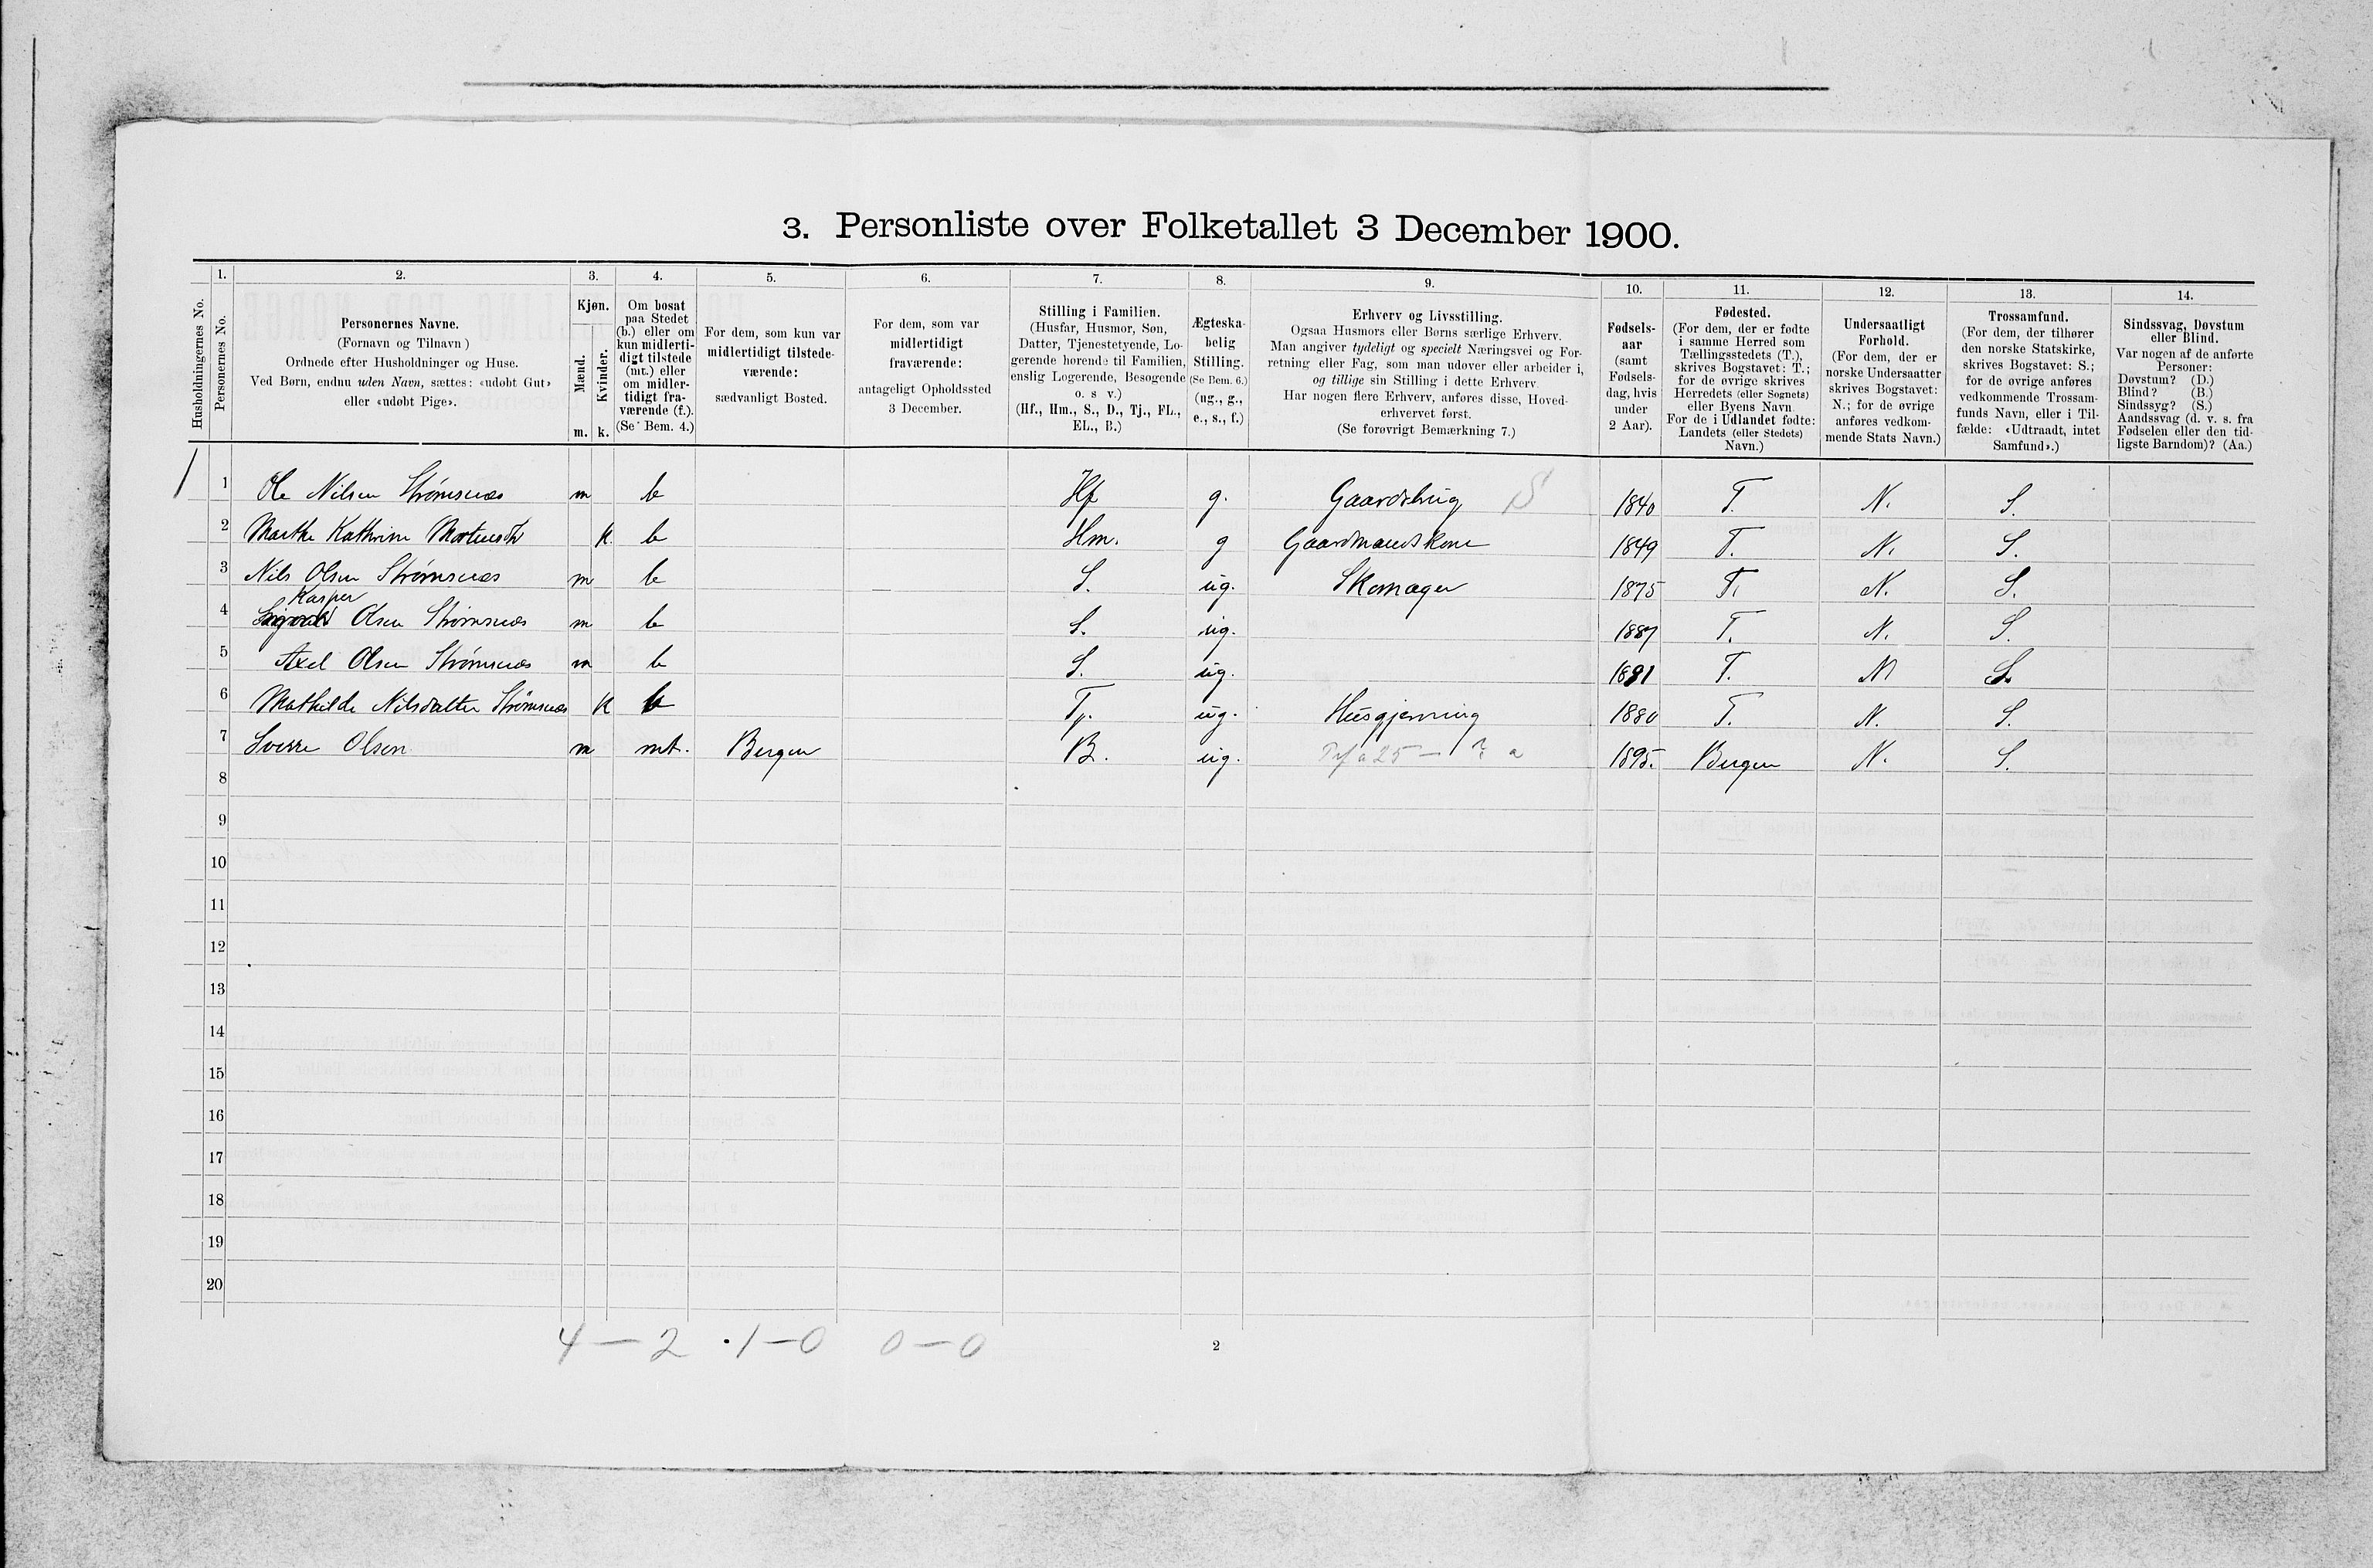 3. Personliste over Folketallet 3 December 1900.
1. 2. 3. 4. 5. 6. 7. 8. 9. 10. 11. 12. 13. 14.
Husholdningernes No.
Personernes No.
Personernes Navne.
(Fornavn og Tilnavn)
Ordnede efter Husholdninger og Huse.
Ved Børn, endnu uden Navn, sættes: «udøbt Gut»
eller «udøbt Pige».
Kjøn.
Mænd.
Kvinder.
m. k.
Om bosat
paa Stedet
(b.) eller om
kun midlerti-
digt tilstede
(mt.) eller
om midler-
tidigt fra-
værende (f.).
(Se Bem. 4.)
For dem, som kun var
midlertidigt tilstede-
værende:
sædvanligt Bosted.
For dem, som var
midlertidigt
fraværende:
antageligt Opholdssted
3 December.
Stilling i Familien.
(Husfar, Husmor, Søn,
Datter, Tjenestetyende, Lo-
gerende hørende til Familien,
enslig Logerende, Besøgende
o. s v.)
(Hf., Hm., S., D., Tj., FL.,
EL., B.)
Ægteska-
belig
Stilling.
(Se Bem. 6.)
(ug., g.,
e., s., f.)
Erhverv og Livsstilling.
Ogsaa Husmors eller Børns særlige Erhverv.
Man angiver tydeligt og specielt Næringsvei og For-
retning eller Fag, som man udøver eller arbeider i,
og tillige sin Stilling i dette Erhverv.
Har nogen flere Erhverv, anføres disse, Hoved-
erhvervet først.
(Se forøvrigt Bemærkning 7.)
Fødsels-
aar
(samt
Fødsels-
dag, hvis
under
2 Aar).
Fødested.
(For dem, der er fødte
i samme Herred som
Tællingsstedets (T.),
skrives Bogstavet: T.;
for de øvrige skrives
Herredets (eller Sognets)
eller Byens Navn
For de i Udlandet fødte:
Landets (eller Stedets)
Navn.)
Undersaatligt
Forhold.
(For dem, der er
norske Undersaatter
skrives Bogstavet:
N.; for de øvrige
anføres vedkom-
mende Stats Navn.)
Trossamfund.
(For dem, der tilhører
den norske Statskirke,
skrives Bogstavet: S.;
for de øvrige anføres
vedkommende Trossam-
funds Navn, eller i Til-
fælde: «Udtraadt, intet
Samfund».)
Sindssvag, Døvstum
eller Blind.
Var nogen af de anførte
Personer:
Døvstum? (D.)
Blind? (B.)
Sindssyg? (S.)
Aandssvag (d. v. s. fra
Fødselen eller den tid-
ligste Barndom)? (Aa.)
1 1 Ole Nilsen Strømsnæs m b Hf g. Gaardsbrug S 1840 T. N. S.
2 Marthe Kathrine k b Hm. g Gaardmandskone 1849 T. N. S.
3 Nils Olsen Strømsnæs m b S. ug. Skomager 1875 T. N. S.
Kasper
4 Olsen Strømsnæs m b S. ug. 1887 T. N. S.
5 Axel Olsen Strømsnæs m b S. ug. 1891 T. N S.
6 Mathilde Nilsdatter Strømsnæs k b Tj. ug. Husgjerning 1880 T. N. S.
7 Sverre Olsen m mt. Bergen B. ug. 1895. Bergen N. S.
8
9
10
11
12
13
14
15
16
17
18
19
20
4 — 2 1 — 0 0 — 0
2